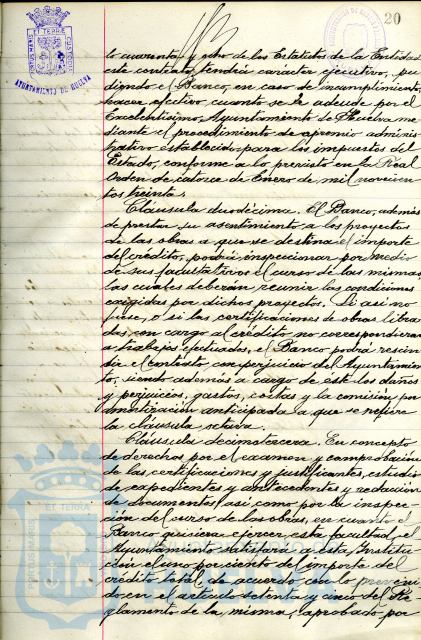 20
PORTUS MARIS ET TERRÆ CUSTODIA
AYUNTAMIENTO DE HUELVA
to cuarenta y ocho de los Estatutos de la Entidad
este contrato tendrá caracter ejecutivo, pu-
diendo el Banco, en caso de incumplimiento,
hacer efectivo cuanto se le adeude por el
Excelentísimo Ayuntamiento de Huelva me-
diante el procedimiento de apremio adminis-
trativo establecido para los impuestos del
Estado, conforme a lo previsto en la Real
Orden de catorce de Enero de mil novecien-
tos treinta.
Cláusula duodécima. El Banco, además
de prestar su asentimiento a los proyectos
de las obras a que se destina el importe
del crédito, podrá inspeccionar por medio
de sus facultativos el curso de las mismas,
las cuales deberán reunir las condiciones
exigidas por dichos proyectos. Si así no
fuese, o si las certificaciones de obras libra-
das con cargo al crédito no correspondieran
a trabajos efectuados, el Banco podrá rescin-
dir el contrato, con perjuicio del Ayuntamien-
to, siendo además a cargo de este los daños
y perjuicios, gastos, costas y la comisión por
amortización anticipada a que se refiere
la cláusula octava.
Cláusula decimotercera. En concepto
de derechos por el examen y comprobación
de las certificaciones y justificantes, estudio
de expedientes y antecedentes y redacción
de documentos, así como por la inspec-
ción del curso de las obras, en cuanto el
Banco quisiera ejercer esta facultad, el
Ayuntamiento satisfará a esta Institu-
ción el uno por ciento del importe del
crédito total, de acuerdo con lo preveni-
do en el artículo setenta y cinco del Re-
glamento de la misma, aprobado por
PORTUS MARIS
ET TERRÆ